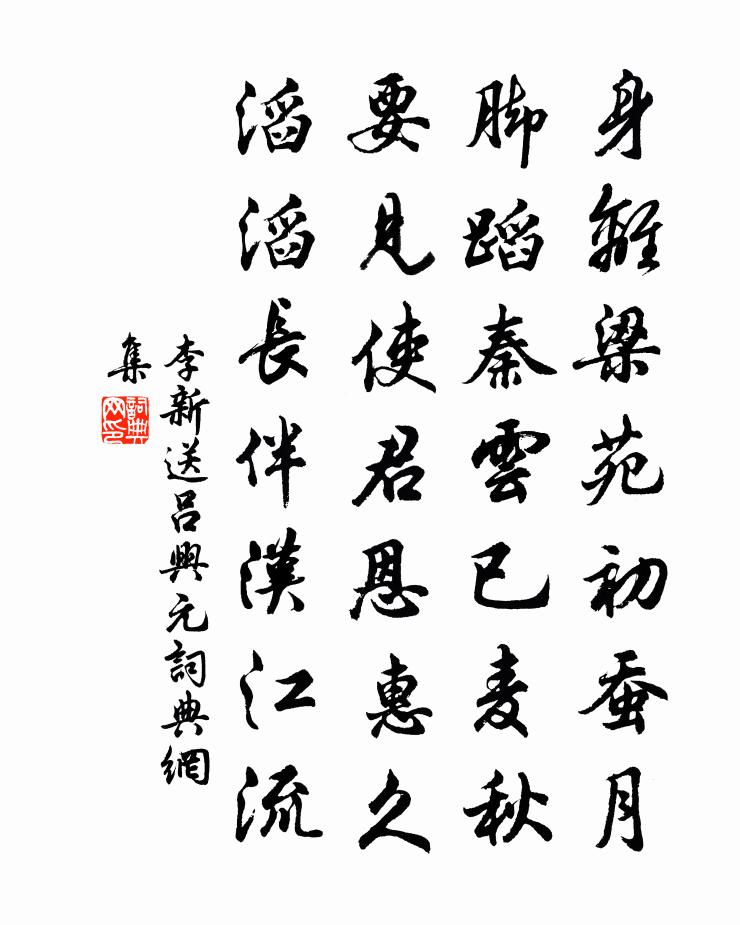 身離梁苑初蚕月
脚蹈秦雲已麦秋
要見使君恩惠久
滔滔長伴漢江流
李新送吕興元詞典網
集
詞典
网印